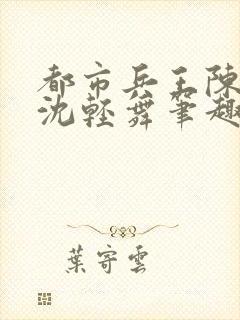 都市兵王陳
沈輕舞筆趣
葉寄雲